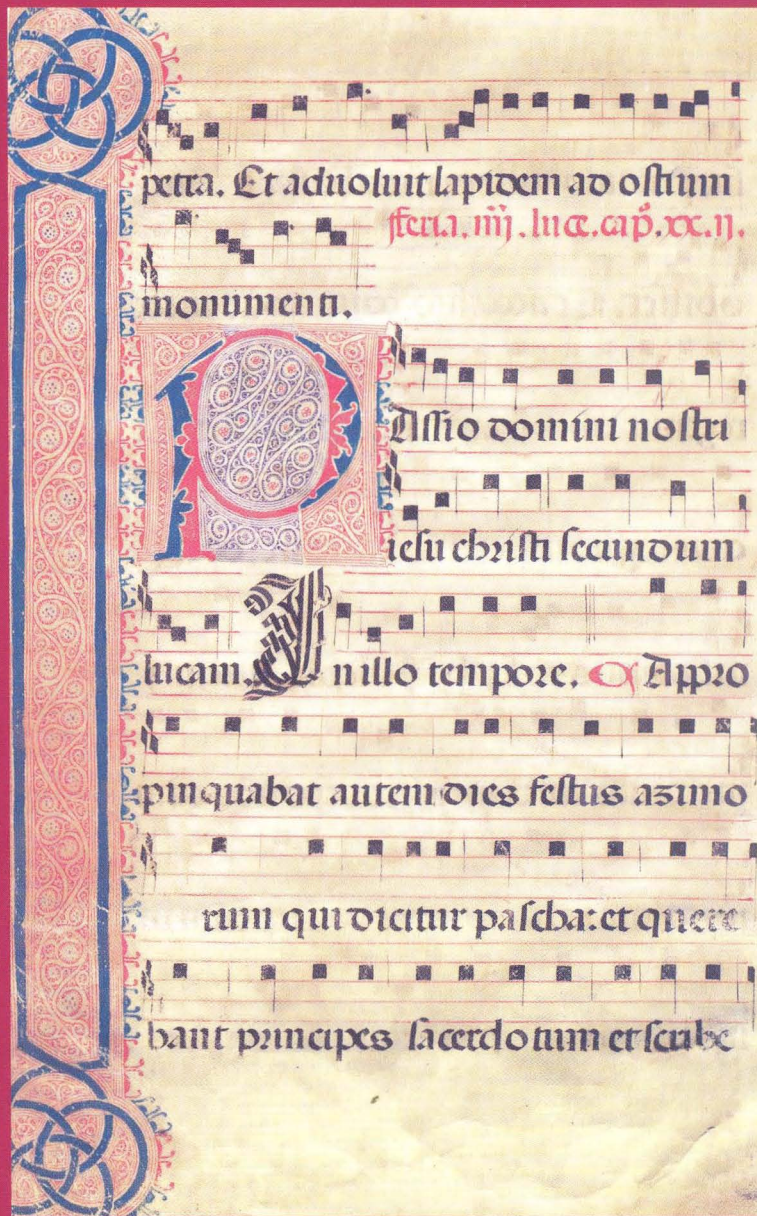 petra. Et aduoluit lapidem ad ostium
fferia. iiij. luce. cap̊. xx. ij.
monumenti.
PAssio domini nostri
iesu christi secundum
lucam. In illo tempore. Appro
pinquabat autem dies festus azimo
rum qui dicitur pascha: et quere
bant principes sacerdotum et scribe